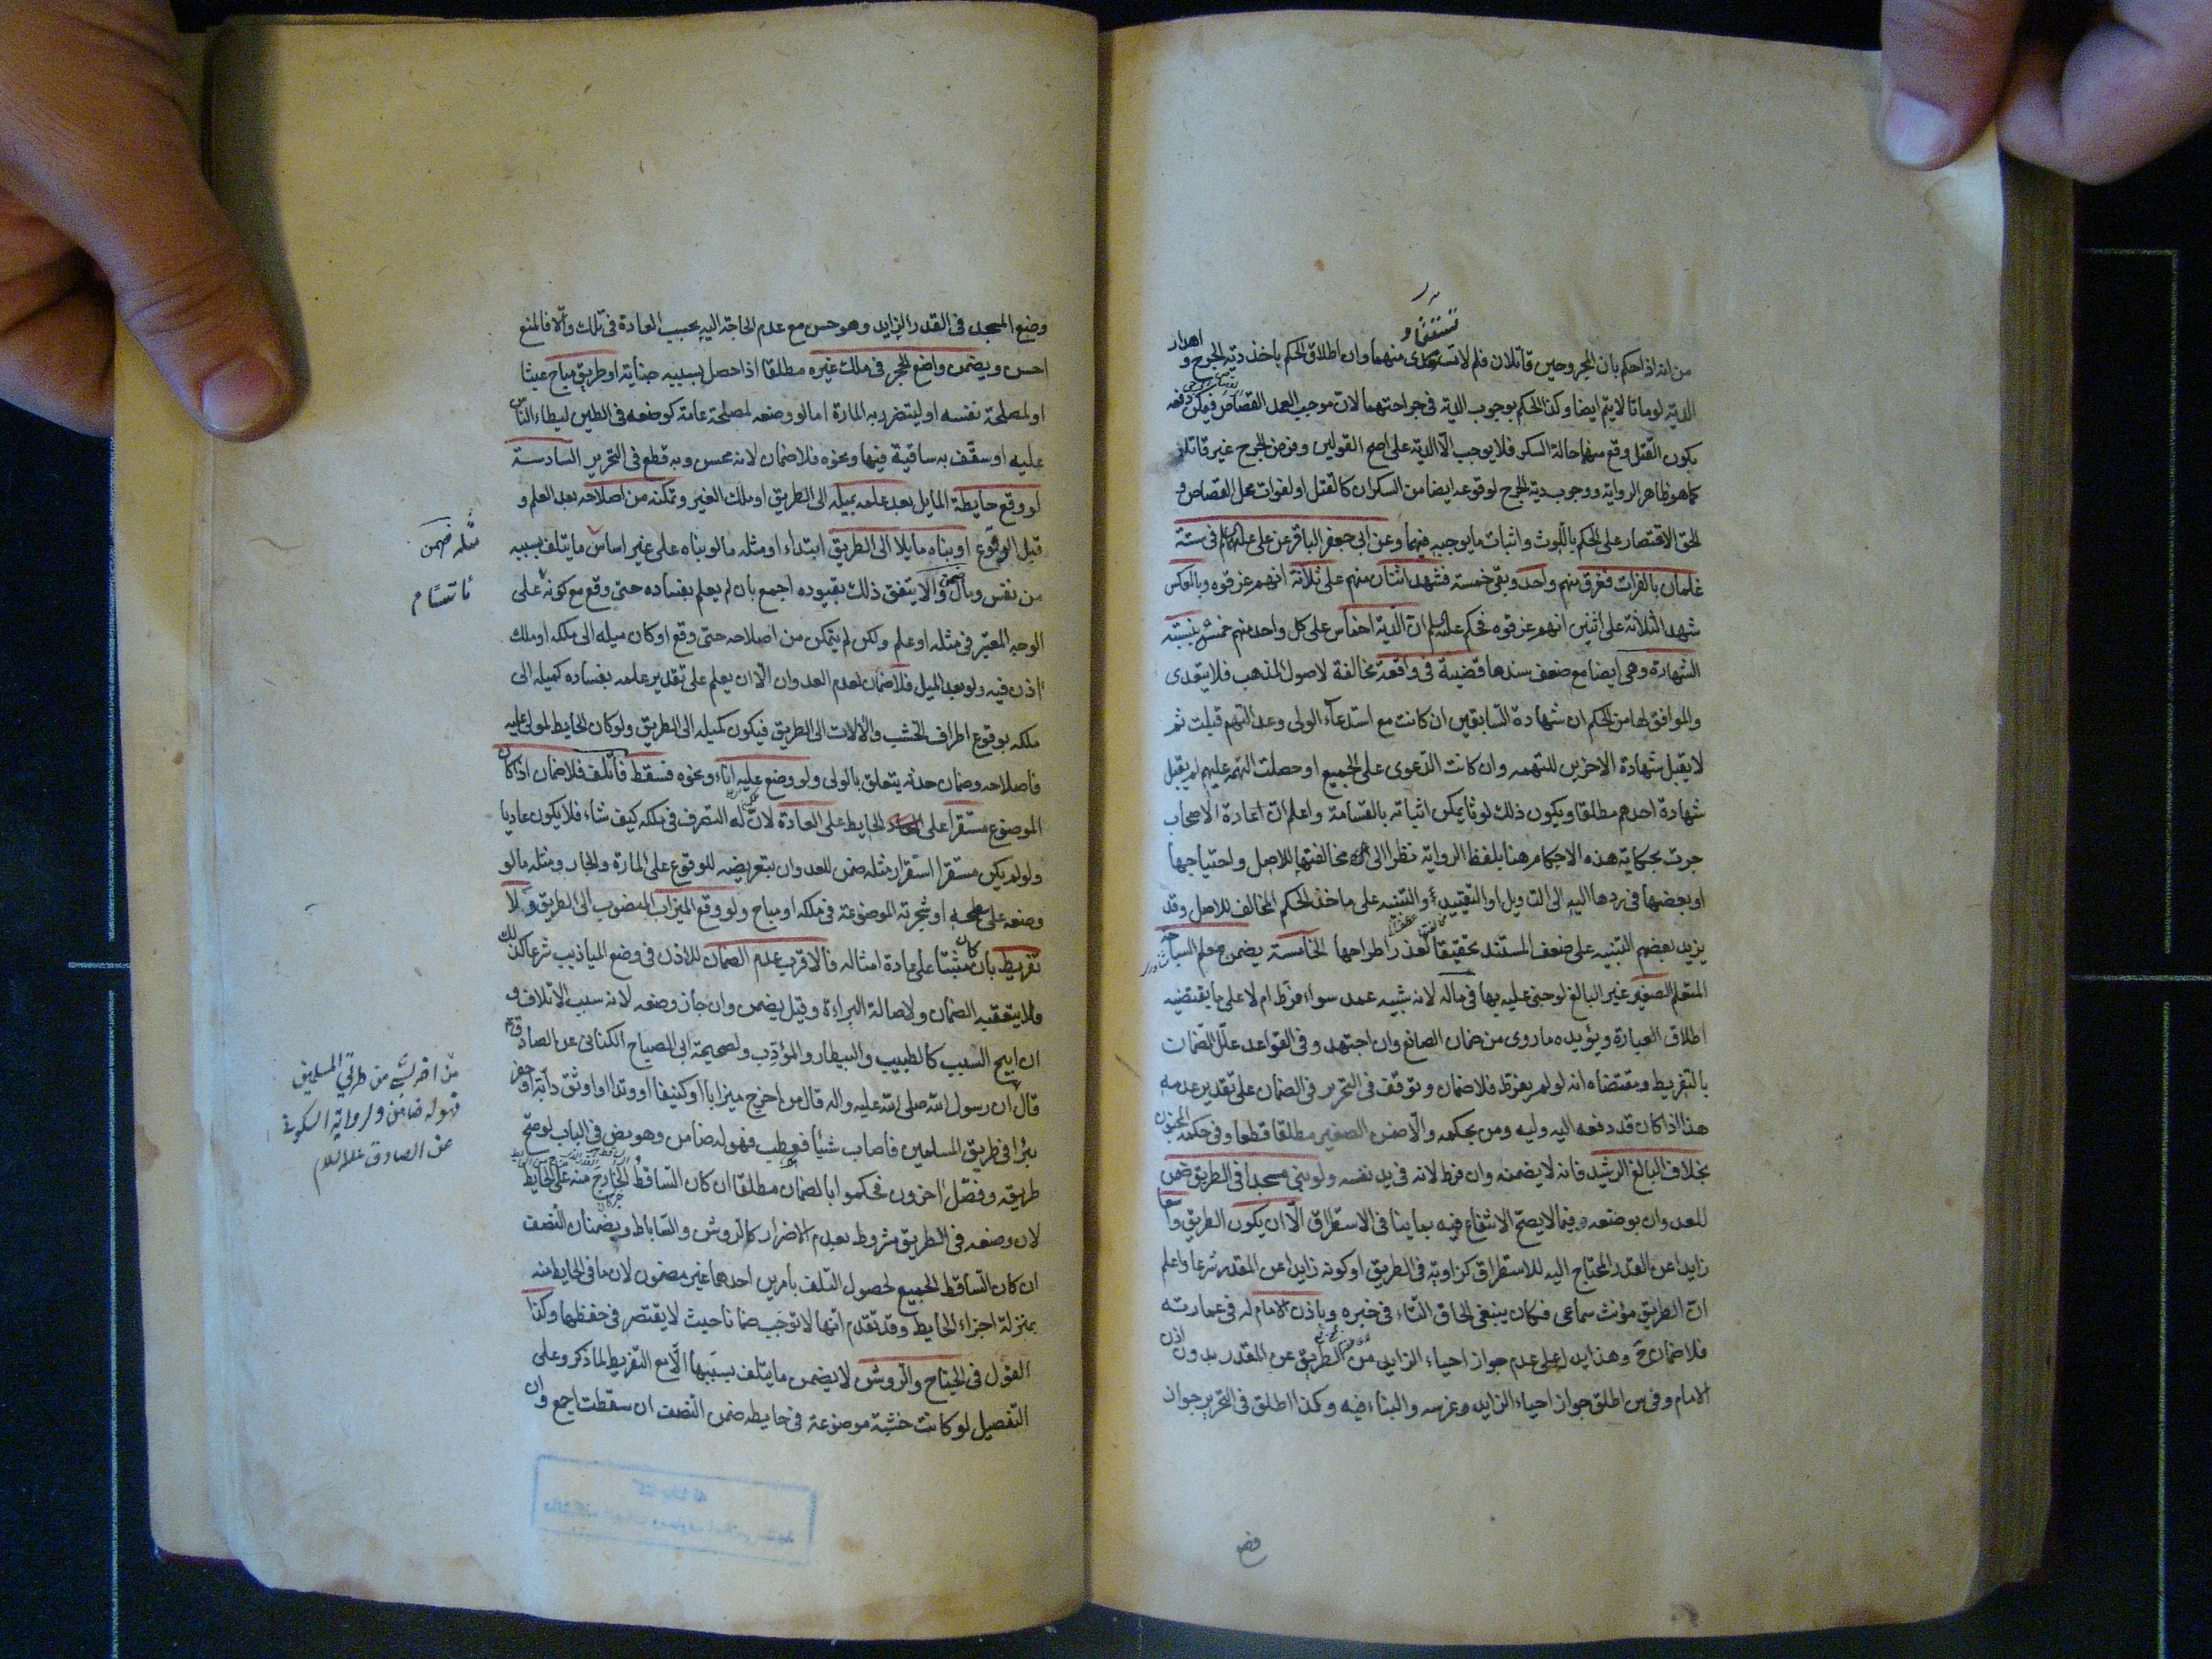 من انه اذا حكم بان المجروحين قاتلان فلم لا تستعدى منهما وان اطلاق الحكم باخذ دية الجرح و اهدار
الدية لو ماتا لا يتم ايضا وكذا الحكم بوجوب الدية فى جراحتهما لان موجب العمد القصاص فيمكن دفعه
يكون القتل وقع منهما حالة السكر فلا يوجب الا الدية على اصح القولين وفرض الجرح غير قاتل
كما هو ظاهر الرواية ووجوب دية الجرح لوقوعه ايضا من السكران كالقتل او لفوات محل القصاص و
الحق الاقتصار على الحكم باللوث واثبات ما يوجبه فيهما وعن ابى جعفر الباقر عن على عليه السلام فى ستة
غلمان بالفرات فغرق منهم واحد وبقى خمسة فشهد اثنان منهم على ثلاثة انهم غرقوه وبالعكس
شهد الثلاثة على اثنين انهم غرقوه فحكم ان الدية اخماس على كل واحد منهم خمس بنسبة
الشهادة وهى ايضا مع ضعف سندها قضية فى واقعة مخالفة لاصول المذهب فلا يتعدى
والموافق لها من الحكم ان شهادة السابقين ان كانت مع استدعاء الولى وعدالتهم قبلت ثم
لا يقبل شهادة الاخرين للتهمه وان كانت الدعوى على الجميع او حصلت التهمة عليهم لم يقبل
شهادة احدهم مطلقا ويكون ذلك لوثا يمكن اثباته بالقسامة واعلم ان عادة الاصحاب
جرت بحكاية هذه الاحكام هنا بلفظ الرواية نظرا الى مخالفتها للاصل واحتياجها
او بعضها فى ردها اليه الى التاويل او التقييد والتنبيه على ماخذ الحكم المخالف للاصل وقد
يزيد بعضهم التنبيه على ضعف المستند تحقيقا لعذر اطراحها الخامسة يضمن معلم السباحة
المتعلم الصغير غير البالغ لو جنى عليه بها فى ماله لانه شبيه عمد سواء فرط ام لا على ما يقتضيه
اطلاق العبارة ويؤيده ما روى من ضمان الصانع وان اجتهد وفى القواعد علل الضمان
بالتفريط ومقتضاه انه لو لم يفرط فلا ضمان وتوقف فى التحرير فى الضمان على تقدير عدمه
هذا اذا كان قد دفعه اليه وليه ومن بحكمه والا ضمن الصغير مطلقا قطعا وفى حكمه المجنون
بخلاف البالغ الرشيد فانه لا يضمنه وان فرط لانه فى يد نفسه ولو بنى مسجدا فى الطريق ضمن
للعدوان بوضعه فيما لا يصح الانتفاع فيه بما ينافى الاستطراق الا ان يكون الطريق واسعا
زايدا عن القدر المحتاج اليه للاستطراق كزاوية فى الطريق او كونه زايدا عن المقدر شرعا واعلم
ان الطريق مؤنث سماعى فكان ينبغى الحاق التاء فى خبره وباذن الامام له فى عمارته
فلا ضمان ح وهذا يدل على عدم جواز احياء الزايد من الطريق عن المقدر بدون اذن
الامام وفى س اطلق جواز احياء الزايد وغرسه والبناء فيه وكذا اطلق فى التحرير جواز
وضع المسجد فى القدر الزايد وهو حسن مع عدم الحاجة اليه بحسب العادة فى تلك والا فالمنع
احسن ويضمن واضع الحجر فى ملك غيره مطلقا اذا حصل بسببه جناية او طريق مباح عبثا
او لمصلحة نفسه او ليتضرر به المارة اما لو وضعه لمصلحة عامة كوضعه فى الطين ليطاء الناس
عليه او سقف به ساقية فيها ونحوه فلا ضمان لانه محسن وبه قطع فى التحرير السادسة
لو وقع حايطه المايل بعد علمه بميله الى الطريق او ملك الغير وتمكنه من اصلاحه بعد العلم و
قبل الوقوع او بناه مايلا الى الطريق ابتداء او مثله ما لو بناه على غير اساس مثله ضمن ما يتلف بسببه
من نفس ومال والا يتفق ذلك بقيوده اجمع بان لم يعلم بفساده حتى وقع مع كونه على
الوجه المعتبر فى مثله او علم ولكن لم يتمكن من اصلاحه حتى وقع او كان ميله الى ملكه او ملك
اذن فيه ولو بعد الميل فلا ضمان لعدم العدوان الا ان يعلم على تقدير علمه بفساده كميله الى
ملكه بوقوع اطراف الخشب والآلات الى الطريق فيكون كميله الى الطريق ولو كان الحايط لمولى عليه
فاصلاحه وضمان حدثه يتعلق بالولى ولو وضع عليه اناء ونحوه فسقط فاتلف فلا ضمان اذا كان
الموضوع مستقرا على الحايط على العادة لان له التصرف فى ملكه كيف شاء فلا يكون عاديا
ولو لم يكن مستقرا استقرار مثله ضمن للعدوان بتعريضه للوقوع على المارة والجار ومثله ما لو
وضعه على سطحه او شجرته الموضوعة فى ملكه او مباح ولو وقع الميزاب المنصوب الى الطريق ولا
تفريط بان كان مثبتا على عادة امثاله فالاقرب عدم الضمان للاذن فى وضع الميازيب شرعا كذلك
فلا يتعقبه الضمان ولاصالة البراءة وقيل يضمن وان جاز وضعه لانه سبب الاتلاف و
ان ابيح السبب كالطبيب والبيطار والمؤدب ولصحيحة ابى الصباح الكنانى عن الصادق
من اضر بشى من طريق المسلمين
فهو له ضامن ولرواية السكونى
عن الصادق عليه السلام
قال ان رسول الله صلى الله عليه واله قال من اخرج ميزابا او كنيفا او وتدا او اوثق دابة او حفر
بئرا فى طريق المسلمين فاصاب شيئا فعطب فهو له ضامن وهو نص فى الباب لو صح
طريقه وفصل اخرون فحكموا بالضمان مطلقا ان كان الساقط الخارج منه عن الحايط
لان وضعه فى الطريق مشروط بعدم الاضرار كالروشن والساباط ويضمنان النصف
ان كان الساقط الجميع لحصول التلف بامرين احدهما غير مضمون لان ما فى الحايط منه
بمنزلة اجزاء الحايط وقد تقدم انها لا توجب ضمانا حيث لا يقتصر فى حفظها وكذا
القول فى الجناح والروشن لا يضمن ما يتلف بسببها الا مع التفريط لما ذكر وعلى
التفصيل لو كانت خشبة موضوعة فى حايطه ضمن النصف ان سقطت اجمع وان